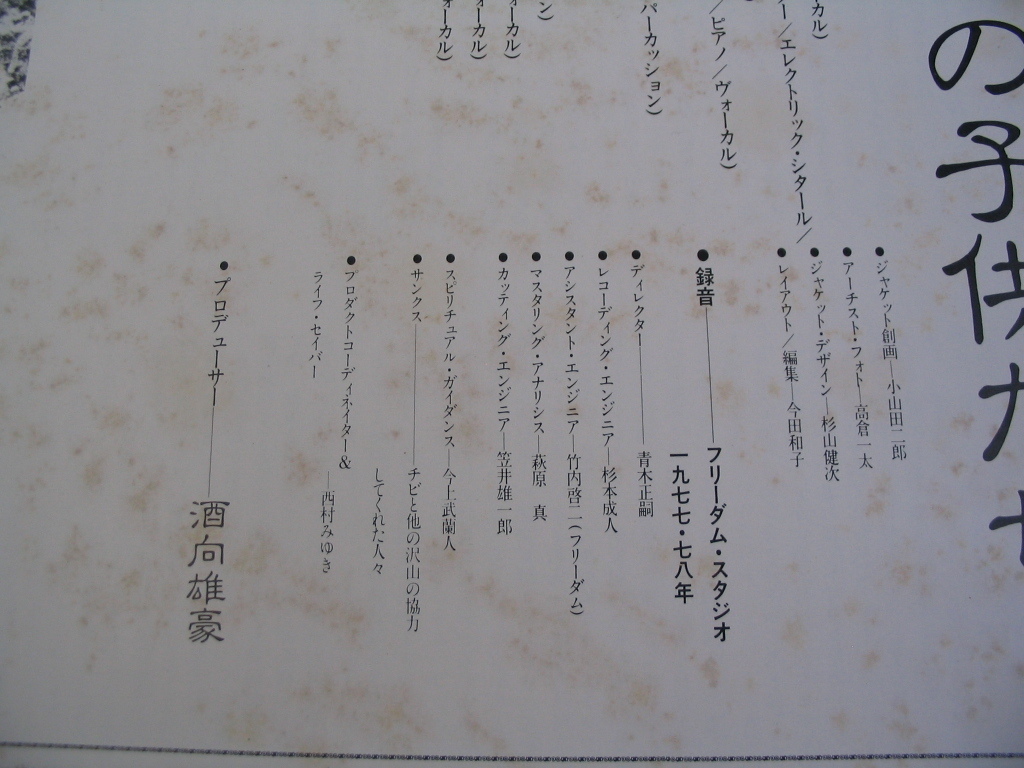 の子供たち
ーカル)
ー/エレクトリック・シタール/
/ピアノ/ヴォーカル)
パーカッション)
ン)
ォーカル)
ォーカル)
ォーカル)
●ジャケット創画—小山田二郎
●アーチスト・フォト—高倉一太
●ジャケット・デザイン—杉山健次
●レイアウト/編集—今田和子
●録音—フリーダム・スタジオ
一九七七・七八年
●ディレクター—青木正嗣
●レコーディング・エンジニア—杉本成人
●アシスタント・エンジニア—竹内啓二(フリーダム)
●マスタリング・アナリシス—萩原 真
●カッティング・エンジニア—笠井雄一郎
●スピリチュアル・ガイダンス—今上武蘭人
●サンクス—チビと他の沢山の協力
してくれた人々
●プロダクトコーディネイター&
ライフ・セイバー—西村みゆき
●プロデューサー—酒向雄豪